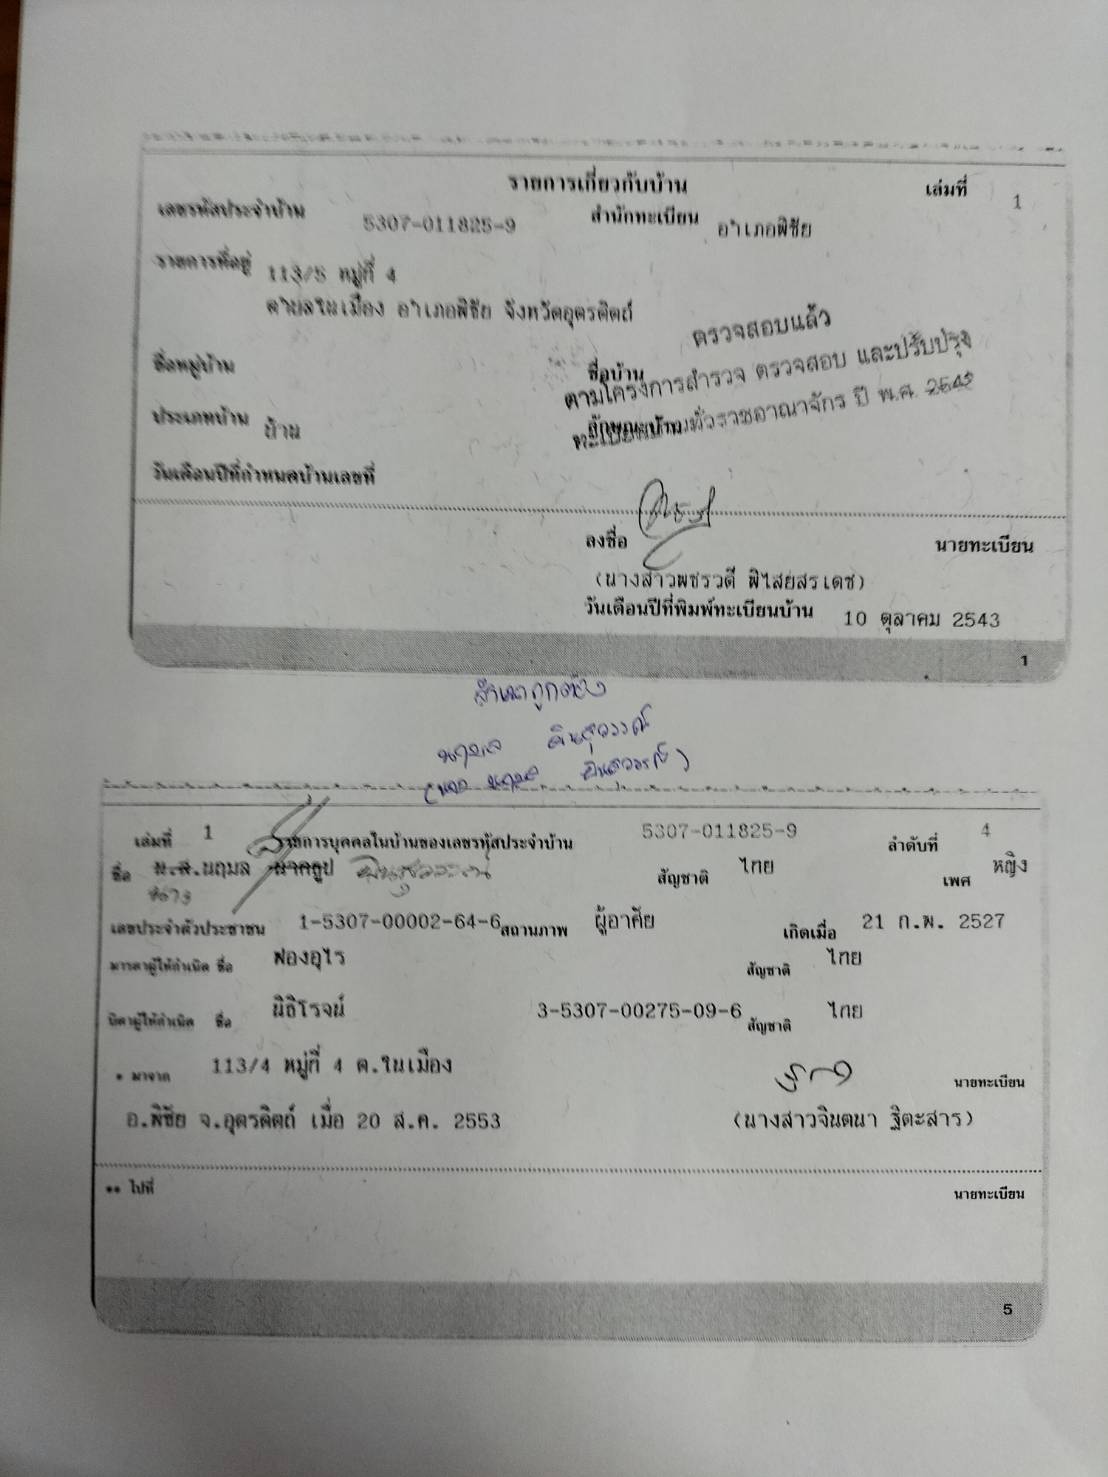 รายการเกี่ยวกับบ้าน เล่มที่ 1
เลขรหัสประจำบ้าน 5307-011825-9 สำนักทะเบียน อำเภอพิชัย
รายการที่อยู่ 113/5 หมู่ที่ 4
ตำบลในเมือง อำเภอพิชัย จังหวัดอุตรดิตถ์
ตรวจสอบแล้ว
ชื่อหมู่บ้าน ชื่อบ้าน
ตามโครงการสำรวจ ตรวจสอบ และปรับปรุง
ประเภทบ้าน บ้าน ลักษณะบ้าน
ทะเบียนบ้านทั่วราชอาณาจักร ปี พ.ศ. 2542
วันเดือนปีที่กำหนดบ้านเลขที่
ลงชื่อ นายทะเบียน
(นางสาวพชรวดี พิไสยสรเดช)
วันเดือนปีที่พิมพ์ทะเบียนบ้าน 10 ตุลาคม 2543
1
สำเนาถูกต้อง
นฤมล
นฤมล
เล่มที่ 1 รายการบุคคลในบ้านของเลขรหัสประจำบ้าน 5307-011825-9 ลำดับที่ 4
ชื่อ น.ส.นฤมล นาคธูป สัญชาติ ไทย เพศ หญิง
เลขประจำตัวประชาชน 1-5307-00002-64-6 สถานภาพ ผู้อาศัย เกิดเมื่อ 21 ก.พ. 2527
มารดาผู้ให้กำเนิด ชื่อ ฟองอุไร สัญชาติ ไทย
บิดาผู้ให้กำเนิด ชื่อ นิธิโรจน์ 3-5307-00275-09-6 สัญชาติ ไทย
* มาจาก 113/4 หมู่ที่ 4 ต.ในเมือง
นายทะเบียน
อ.พิชัย จ.อุตรดิตถ์ เมื่อ 20 ส.ค. 2553 (นางสาวจินตนา ฐิตะสาร)
** ไปที่ นายทะเบียน
5